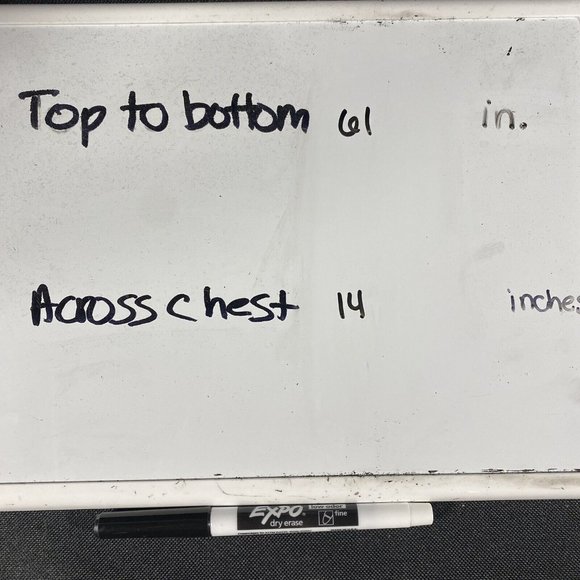 Top to bottom 61 in.
Across chest 14 inches
EXPO
dry erase
low odor
fine